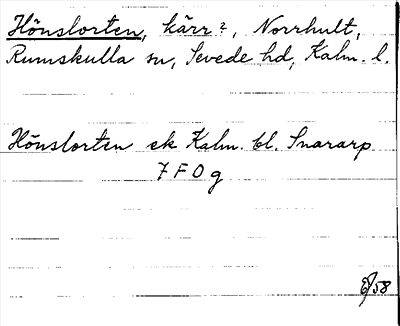 Hönslorten, kärr?, Norrhult,
Rumskulla sn, Sevede hd, Kalm. l.
Hönslorten ek Kalm. bl. Snararp
7 F 0 g
E/58